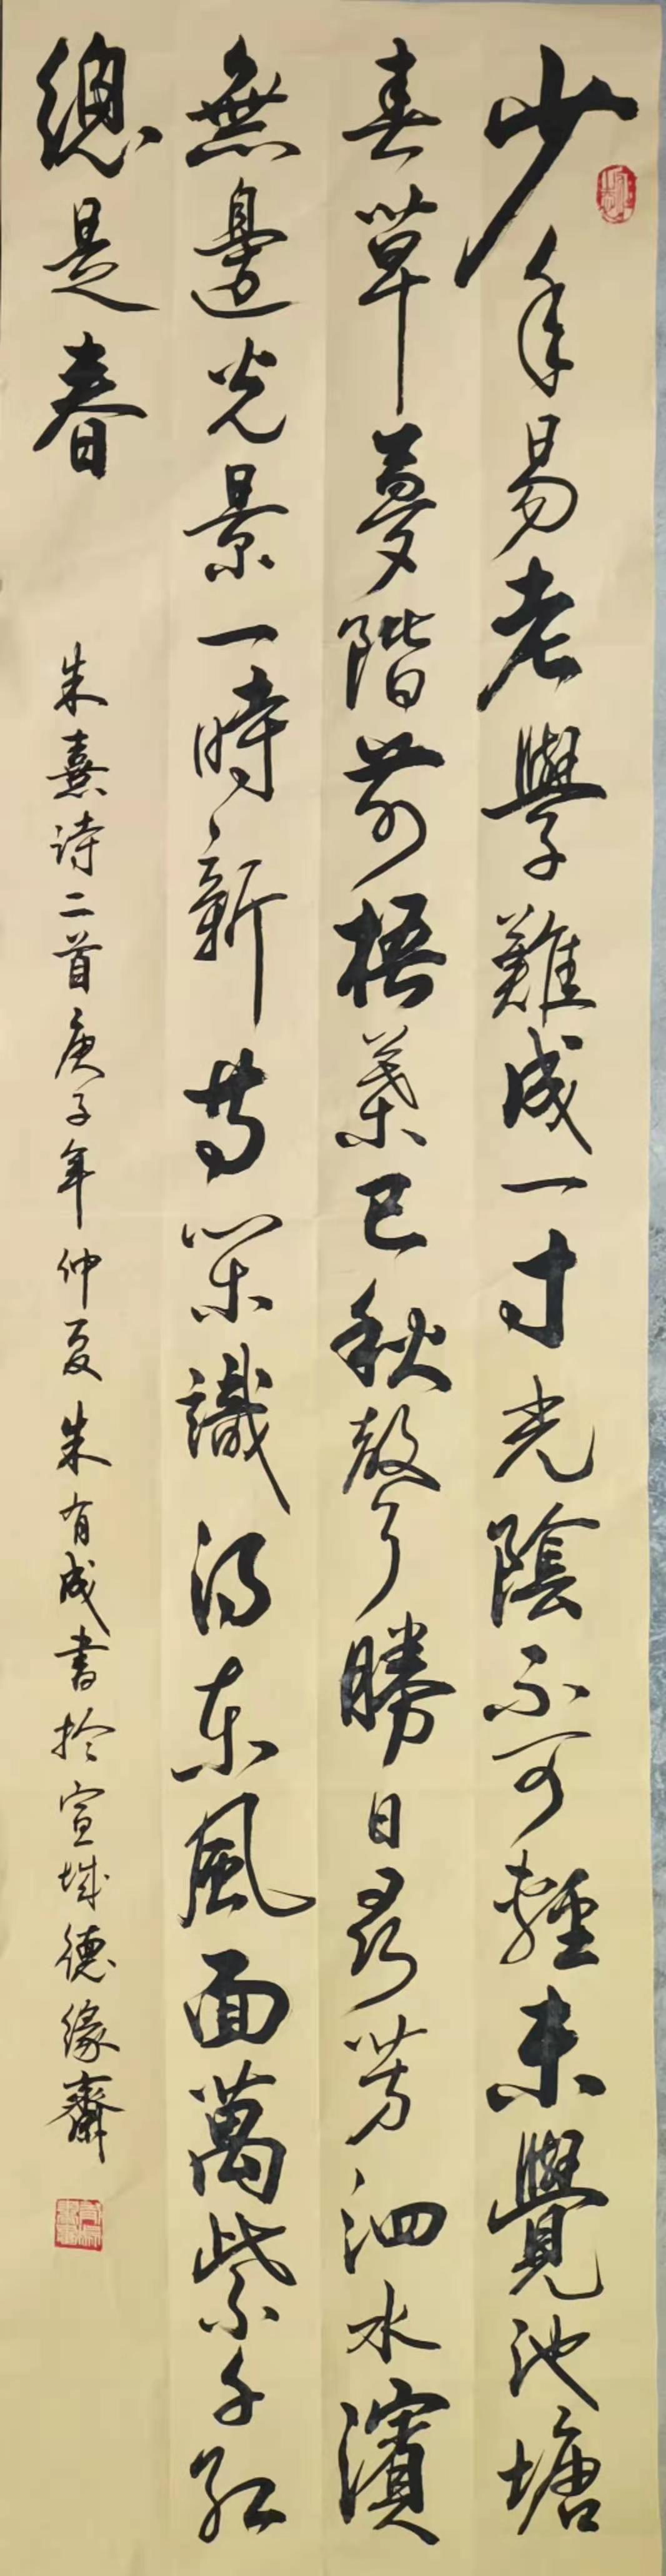 少年易老學難成一寸光陰不可輕未覺池塘
春草夢階前梧葉已秋聲勝日尋芳泗水濱
無邊光景一時新等閑識得東風面萬紫千紅
總是春
朱熹诗二首庚子年仲夏朱有成書於宣城德缘齋